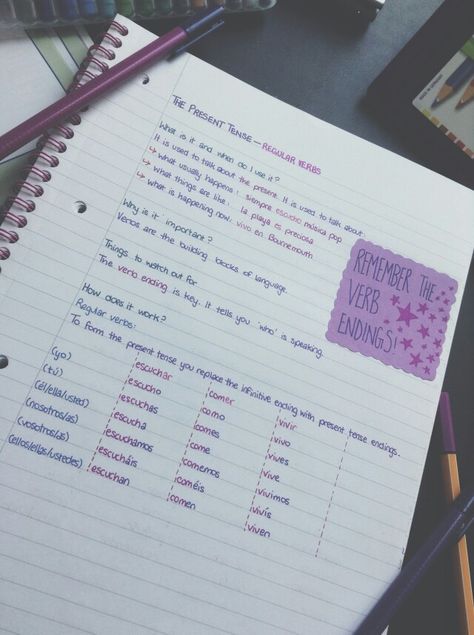 THE PRESENT TENSE – REGULAR VERBS
What is it and when do I use it?
It is used to talk about the present. It is used to talk about:
↳ what usually happens: siempre escucho música pop
↳ what things are like: la playa es preciosa
↳ what is happening now. vivo en Bournemouth
Why is it important?
Verbs are the building blocks of language.
Things to watch out for
The verb ending is key. It tells you 'who' is speaking.
How does it work?
Regular verbs:
To form the present tense you replace the infinitive ending with present tense endings.
escuchar comer vivir
(yo) escucho como vivo
(tú) escuchas comes vives
(él/ella/usted) escucha come vive
(nosotros/as) escuchamos comemos vivimos
(vosotros/as) escucháis coméis vivís
(ellos/ellas/ustedes) escuchan comen viven
REMEMBER THE
VERB
ENDINGS!